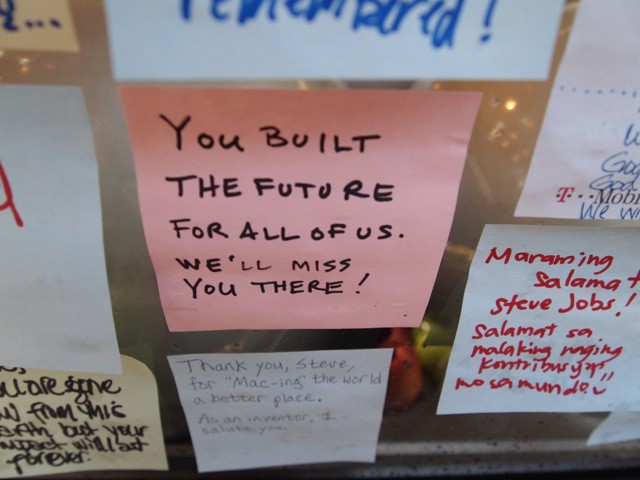 remembered!
YOU BUILT
THE FUTURE
FOR ALL OF US.
WE'LL MISS
YOU THERE!
Thank you, Steve,
for "Mac-ing" the world
a better place.
As an inventor, I
salute you.
Maraming
Salamat
Steve Jobs!
Salamat sa
malaking naging
kontribusyon
mo sa mundo!!
T-Mobi
We wi
are gone
from this
earth, but your
impact will last
forever.